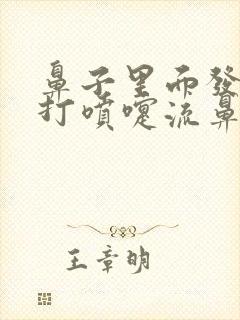 鼻子里而發
打噴嚏流鼻
王章明